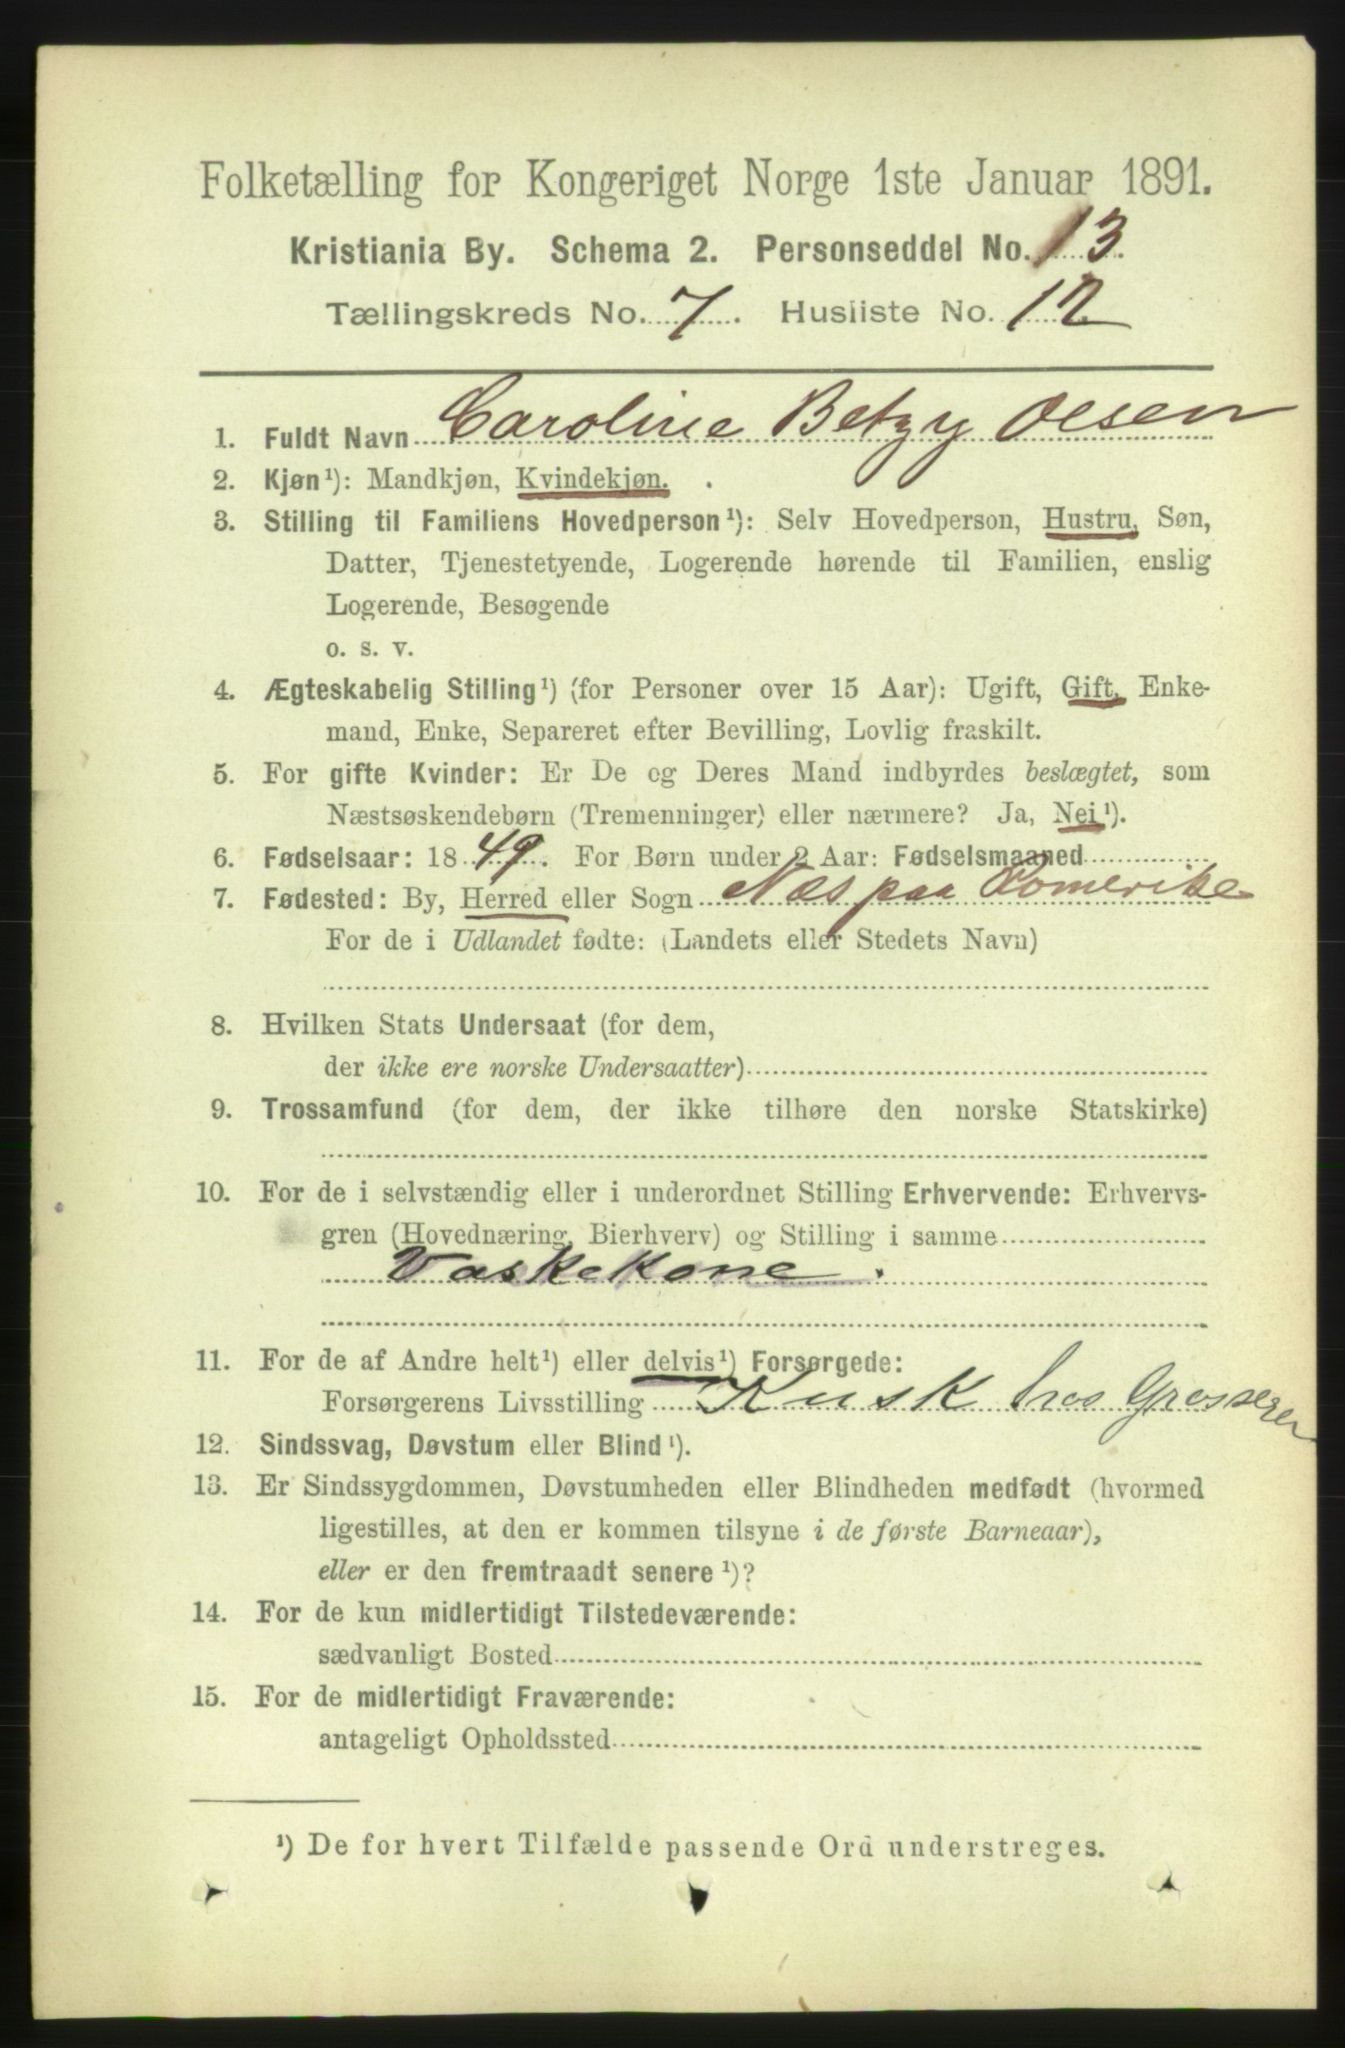 Folketælling for Kongeriget Norge 1ste Januar 1891.
Kristiania By. Schema 2. Personseddel No. 13.
Tællingskreds No. 7. Husliste No. 12
1. Fuldt Navn Caroline Betzy Olsen
2. Kjøn¹): Mandkjøn, Kvindekjøn.
3. Stilling til Familiens Hovedperson¹): Selv Hovedperson, Hustru, Søn,
Datter, Tjenestetyende, Logerende hørende til Familien, enslig
Logerende, Besøgende
o. s. v.
4. Ægteskabelig Stilling¹) (for Personer over 15 Aar): Ugift, Gift, Enke-
mand, Enke, Separeret efter Bevilling, Lovlig fraskilt.
5. For gifte Kvinder: Er De og Deres Mand indbyrdes beslægtet, som
Næstsøskendebørn (Tremenninger) eller nærmere? Ja, Nei¹).
6. Fødselsaar: 1849. For Børn under 2 Aar: Fødselsmaaned
7. Fødested: By, Herred eller Sogn Næs paa Romerike
For de i Udlandet fødte: (Landets eller Stedets Navn)
8. Hvilken Stats Undersaat (for dem,
der ikke ere norske Undersaatter)
9. Trossamfund (for dem, der ikke tilhøre den norske Statskirke)
10. For de i selvstændig eller i underordnet Stilling Erhvervende: Erhvervs-
gren (Hovednæring, Bierhverv) og Stilling i samme
Vaskekone.
11. For de af Andre helt¹) eller delvis¹) Forsørgede:
Forsørgerens Livsstilling Kusk hos Grosserer
12. Sindssvag, Døvstum eller Blind¹).
13. Er Sindssygdommen, Døvstumheden eller Blindheden medfødt (hvormed
ligestilles, at den er kommen tilsyne i de første Barneaar),
eller er den fremtraadt senere¹)?
14. For de kun midlertidigt Tilstedeværende:
sædvanligt Bosted
15. For de midlertidigt Fraværende:
antageligt Opholdssted
¹) De for hvert Tilfælde passende Ord understreges.